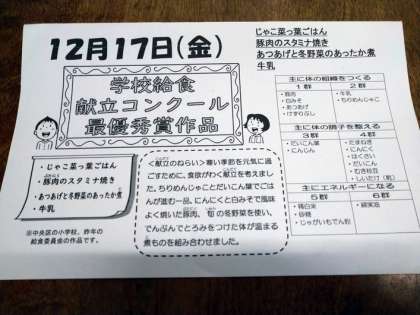 12月17日(金)
じゃこ菜っ葉ごはん
豚肉のスタミナ焼き
あつあげと冬野菜のあったか煮
牛乳
学校給食
献立コンクール
最優秀賞作品
・じゃこ菜っ葉ごはん
・豚肉のスタミナ焼き
・あつあげと冬野菜のあったか煮
・牛乳
※中央区の小学校、昨年の
給食委員会の作品です。
<献立のねらい>寒い季節を元気に過
ごすために、食欲がわく献立を考えまし
た。ちりめんじゃことだいこん葉でごは
んが進む一品。にんにくと白みそで風味
よく焼いた豚肉。旬の冬野菜を使い、
でんぷんでとろみをつけた体が温まる
煮ものを組み合わせました。
主に体の組織をつくる
1群 2群
・豚肉 ・牛乳
・白みそ ・ちりめんじゃこ
・あつあげ
・けずりぶし
主に体の調子を整える
3群 4群
・だいこん葉 ・たまねぎ
・にんじん ・にんにく
・はくさい
・だいこん
・むき枝豆
・しいたけ(乾)
主にエネルギーになる
5群 6群
・精白米 ・綿実油
・砂糖
・じゃがいもでん粉